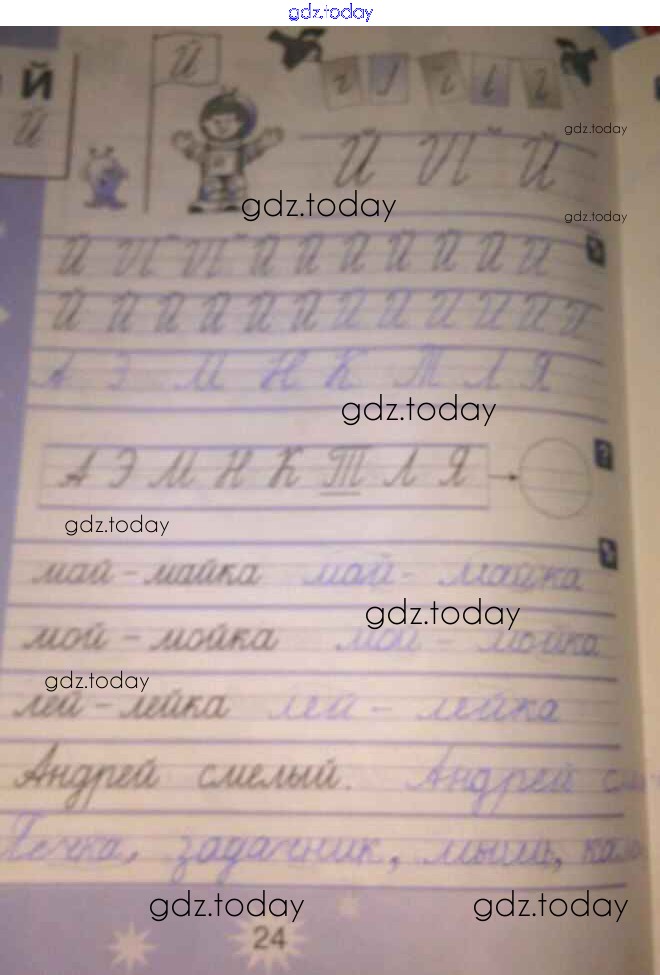 gdz.today
Й
Й
Й
gdz.today
Й И Й
gdz.today
gdz.today
Й И И Й Й Й Й Й Й Й
Й Й Й Й Й Й Й Й Й Й Й Й
А Э М Н К Т Л Я
gdz.today
?
А Э М Н К Т Л Я
gdz.today
май – майка май - майка
gdz.today
мой – мойка мой - мойка
gdz.today
лей – лейка лей - лейка
Андрей смелый. Андрей
задачник, мышь,
gdz.today gdz.today
24